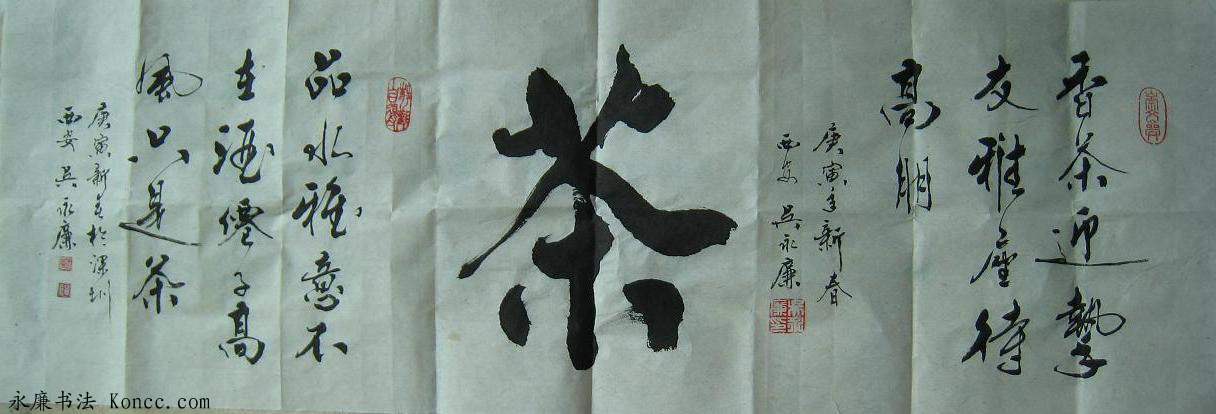 香茶迎摯
友雅座待
高朋
庚寅年新春
西安 吴永廉
茶
品水雅意不
在酒儒子高
風只是茶
庚寅新春於深圳
西安吴永廉
永廉书法 Koncc.com